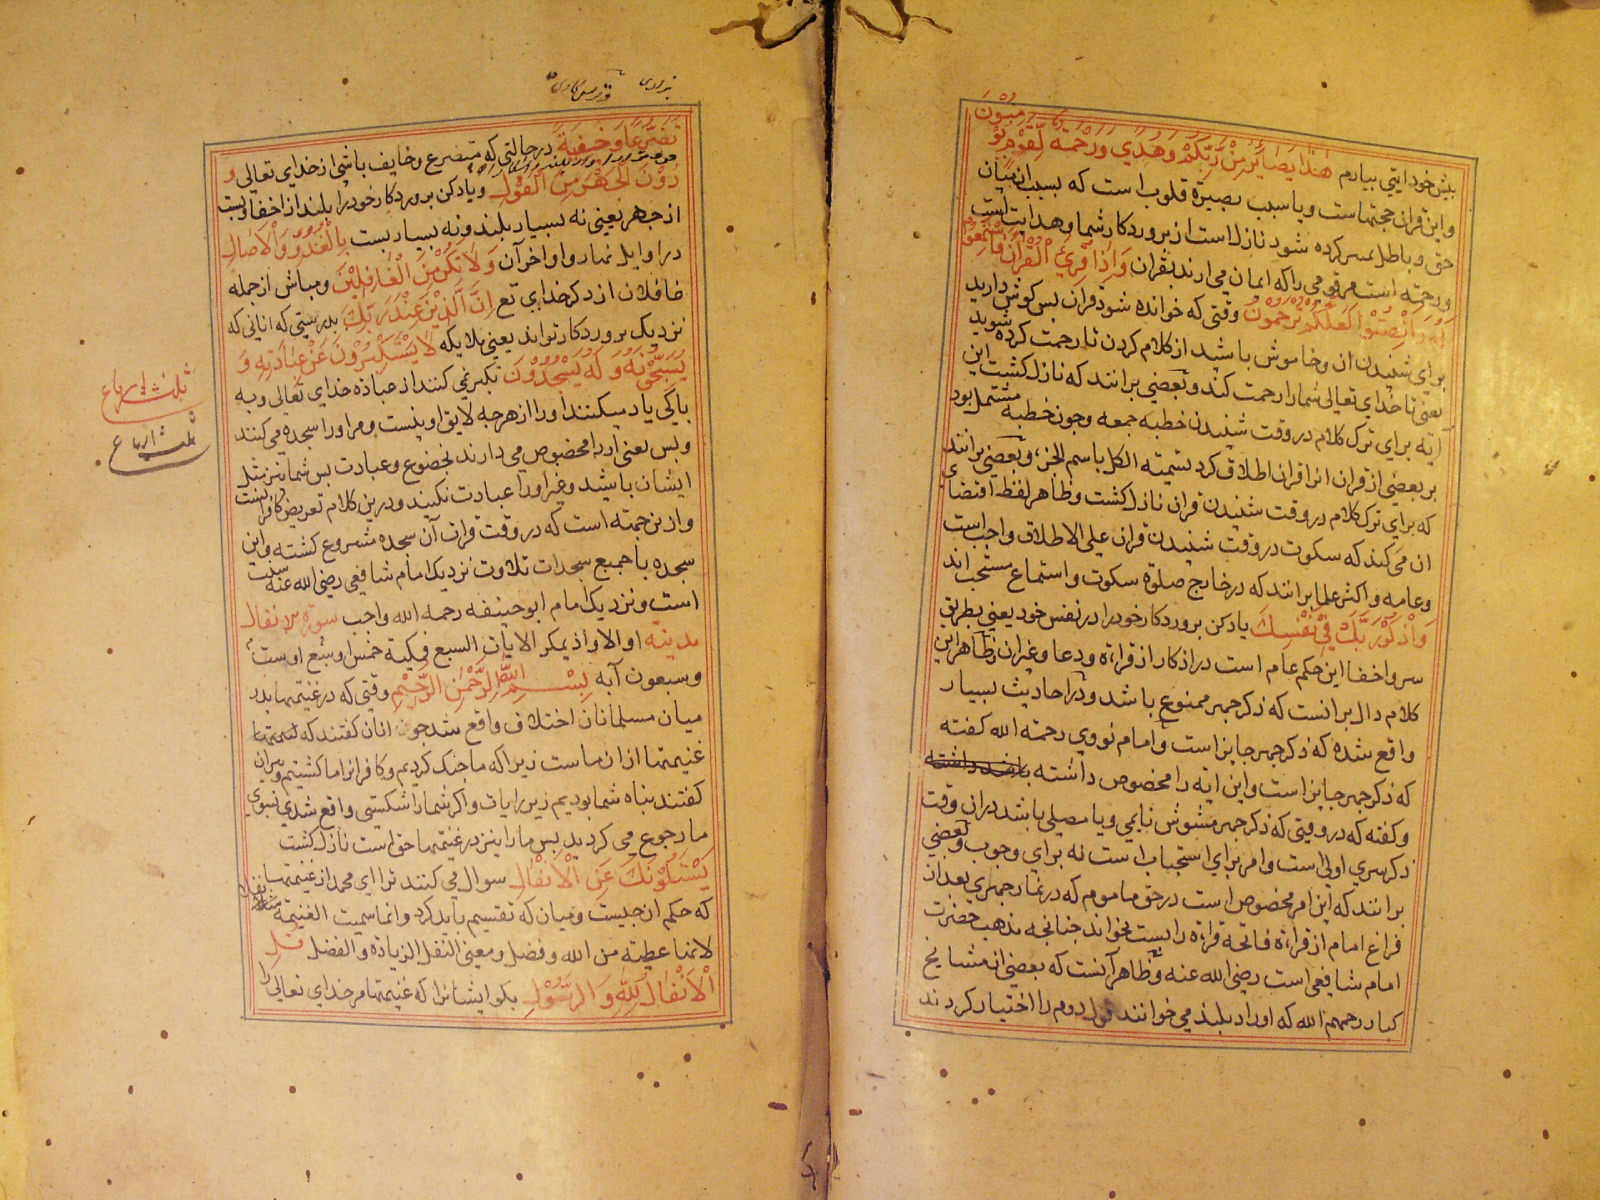 بیش خود ایتی بیارم هٰذَا بَصَائِرُ مِنْ رَّبِّكُمْ وَهُدًي وَّرَحْمَةٌ لِّقَوْمٍ یُؤْمِنُوْنَ
واین قران حجتهاست ویا سبب بصیرة قلوب است که بسبب ان میان
حق وباطل کرده شود نازل است از بروردکار شما وهدایت است
ورحمة است مر قومی را که ایمان می ارند بقران وَاِذَا قُرِئَ الْقُرْاٰنُ فَاسْتَمِعُوْا
لَهٗ وَاَنْصِتُوْا لَعَلَّكُمْ تُرْحَمُوْنَ وقتی که خوانده شود قران بس کوش دارید
برای شنیدن ان وخاموش باشید از کلام کردن تا رحمت کرده شوید
یعنی تا خدای تعالی شمارا رحمت کند وبعضی برانند که نازل کشت این
ایه برای ترک کلام در وقت شنیدن خطبه جمعه وجون خطبه مشتمل بود
بر بعضی از قران انرا قران اطلاق کرد تسمیته الکل باسم الجزء وبعضی برانند
که برای ترک کلام در وقت شنیدن قران نازل کشت وظاهر لفظ اقتضای
ان می کند که سکوت در وقت شنیدن قران علی الاطلاق واجب است
وعامه واکثر علما برانند که در خارج صلوة سکوت واستماع مستحب اند
وَاذْكُرْ رَبَّكَ فِيْ نَفْسِكَ یاد کن بروردکار خود را در نفس خود یعنی بطریق
سر واخفا این حکم عام است در اذکار از قراءة ودعا وغیر ان وظاهر این
کلام دال برانست که ذکر جهر ممنوع باشد ودر احادیث بسیار
واقع شده که ذکر جهر جایز است وامام نووی رحمه الله کفته
که ذکر جهر جایز است واین ایه را مخصوص داشته
وکفته که در وقتی که ذکر جهر مشوش نایمی ویا مصلی باشد دران وقت
ذکر سری اولی است وامر برای استحباب است نه برای وجوب وبعضی
برانند که این امر مخصوص است در حق ماموم که در نماز جهری بعد از
فراغ امام از قراءة فاتحه قراءة را بست بخواند جنانجه مذهب حضرت
امام شافعی است رضی الله عنه وظاهر آنست که بعضی از مشایخ
کبار رحمهم الله که اوراد بلند می خوانند قول دوم را اختیار کردند
تَضَرُّعًا وَّخِيْفَةً در حالتی که متضرع وخایف باشی از خدای تعالی وَ
دُوْنَ الْجَهْرِ مِنَ الْقَوْلِ ویاد کن بروردکار خود را بلند از اخفا وبست
از جهر یعنی نه بسیار بلند ونه بسیار بست بِالْغُدُوِّ وَالْاٰصَالِ
در اوایل نهار واواخر آن وَلَا تَكُنْ مِّنَ الْغَافِلِيْنَ ومباش از جمله
غافلان از ذکر خدای تع اِنَّ الَّذِيْنَ عِنْدَ رَبِّكَ بدرستی که انانی که
نزدیک بروردکار تواند یعنی ملایکه لَا يَسْتَكْبِرُوْنَ عَنْ عِبَادَتِهٖ وَ
يُسَبِّحُوْنَهٗ وَلَهٗ يَسْجُدُوْنَ تکبر نمی کنند از عبادة خدای تعالی وبه
باکی یاد میکنند اورا از هرجه لایق او نیست ومر اورا سجده می کنند
وبس یعنی اورا مخصوص می دارند بخضوع وعبادت بس شما نیز مثل
ایشان باشید وغیر اورا عبادت نکنید ودرین کلام تعریض کافرانست
واز ین جهته است که در وقت قراءت آن سجده مشروع کشته واین
سجده با جمیع سجدات تلاوت نزدیک امام شافعی رضی الله عنه سنت
است ونزدیک امام ابو حنیفه رحمه الله واجب سورة الانفال
مدنیة او الا واذ یمکر الایات السبع فمکیة خمس او ست
وسبعون آیه بِسْمِ اللّٰهِ الرَّحْمٰنِ الرَّحِيْمِ وقتی که در غنیمتها بدر
میان مسلمانان اختلاف واقع شد جوانان کفتند که
غنیمتها از ان ماست زیرا که ما جنک کردیم وکافرانرا ما کشتیم وبیران
کفتند بناه شما بودیم زیر رایات واکر شمارا شکستی واقع شدی بسوی
ما رجوع می کردید بس مارا نیز در غنیمتها حق است نازل کشت
يَسْئَلُوْنَكَ عَنِ الْاَنْفَالِ سوال می کنند ترا ای محمد از غنیمتها
که حکم ان جیست ومیان که تقسیم باید کرد وانما سمیت الغنیمة
لانها عطیة من الله وفضل ومعنی النفل الزیادة والفضل قُلِ
الْاَنْفَالُ لِلّٰهِ وَالرَّسُوْلِ بکو ایشانرا که غنیمتها مر خدای تعالی را
ثلث الارباع
ثلث ارباع